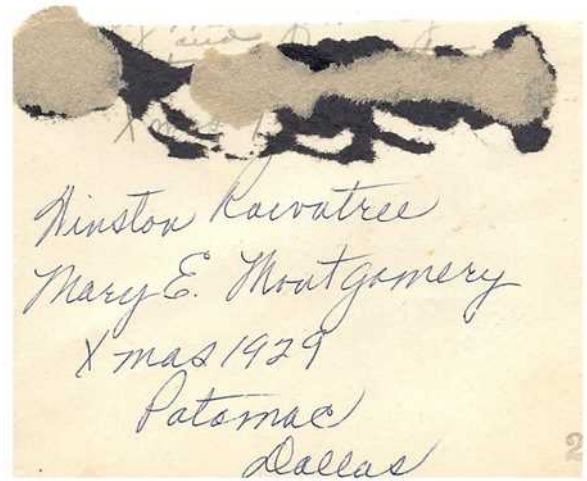 X and
Xmas
Winston Rowntree
Mary E. Montgomery
Xmas 1929
Potomac
Dallas
2